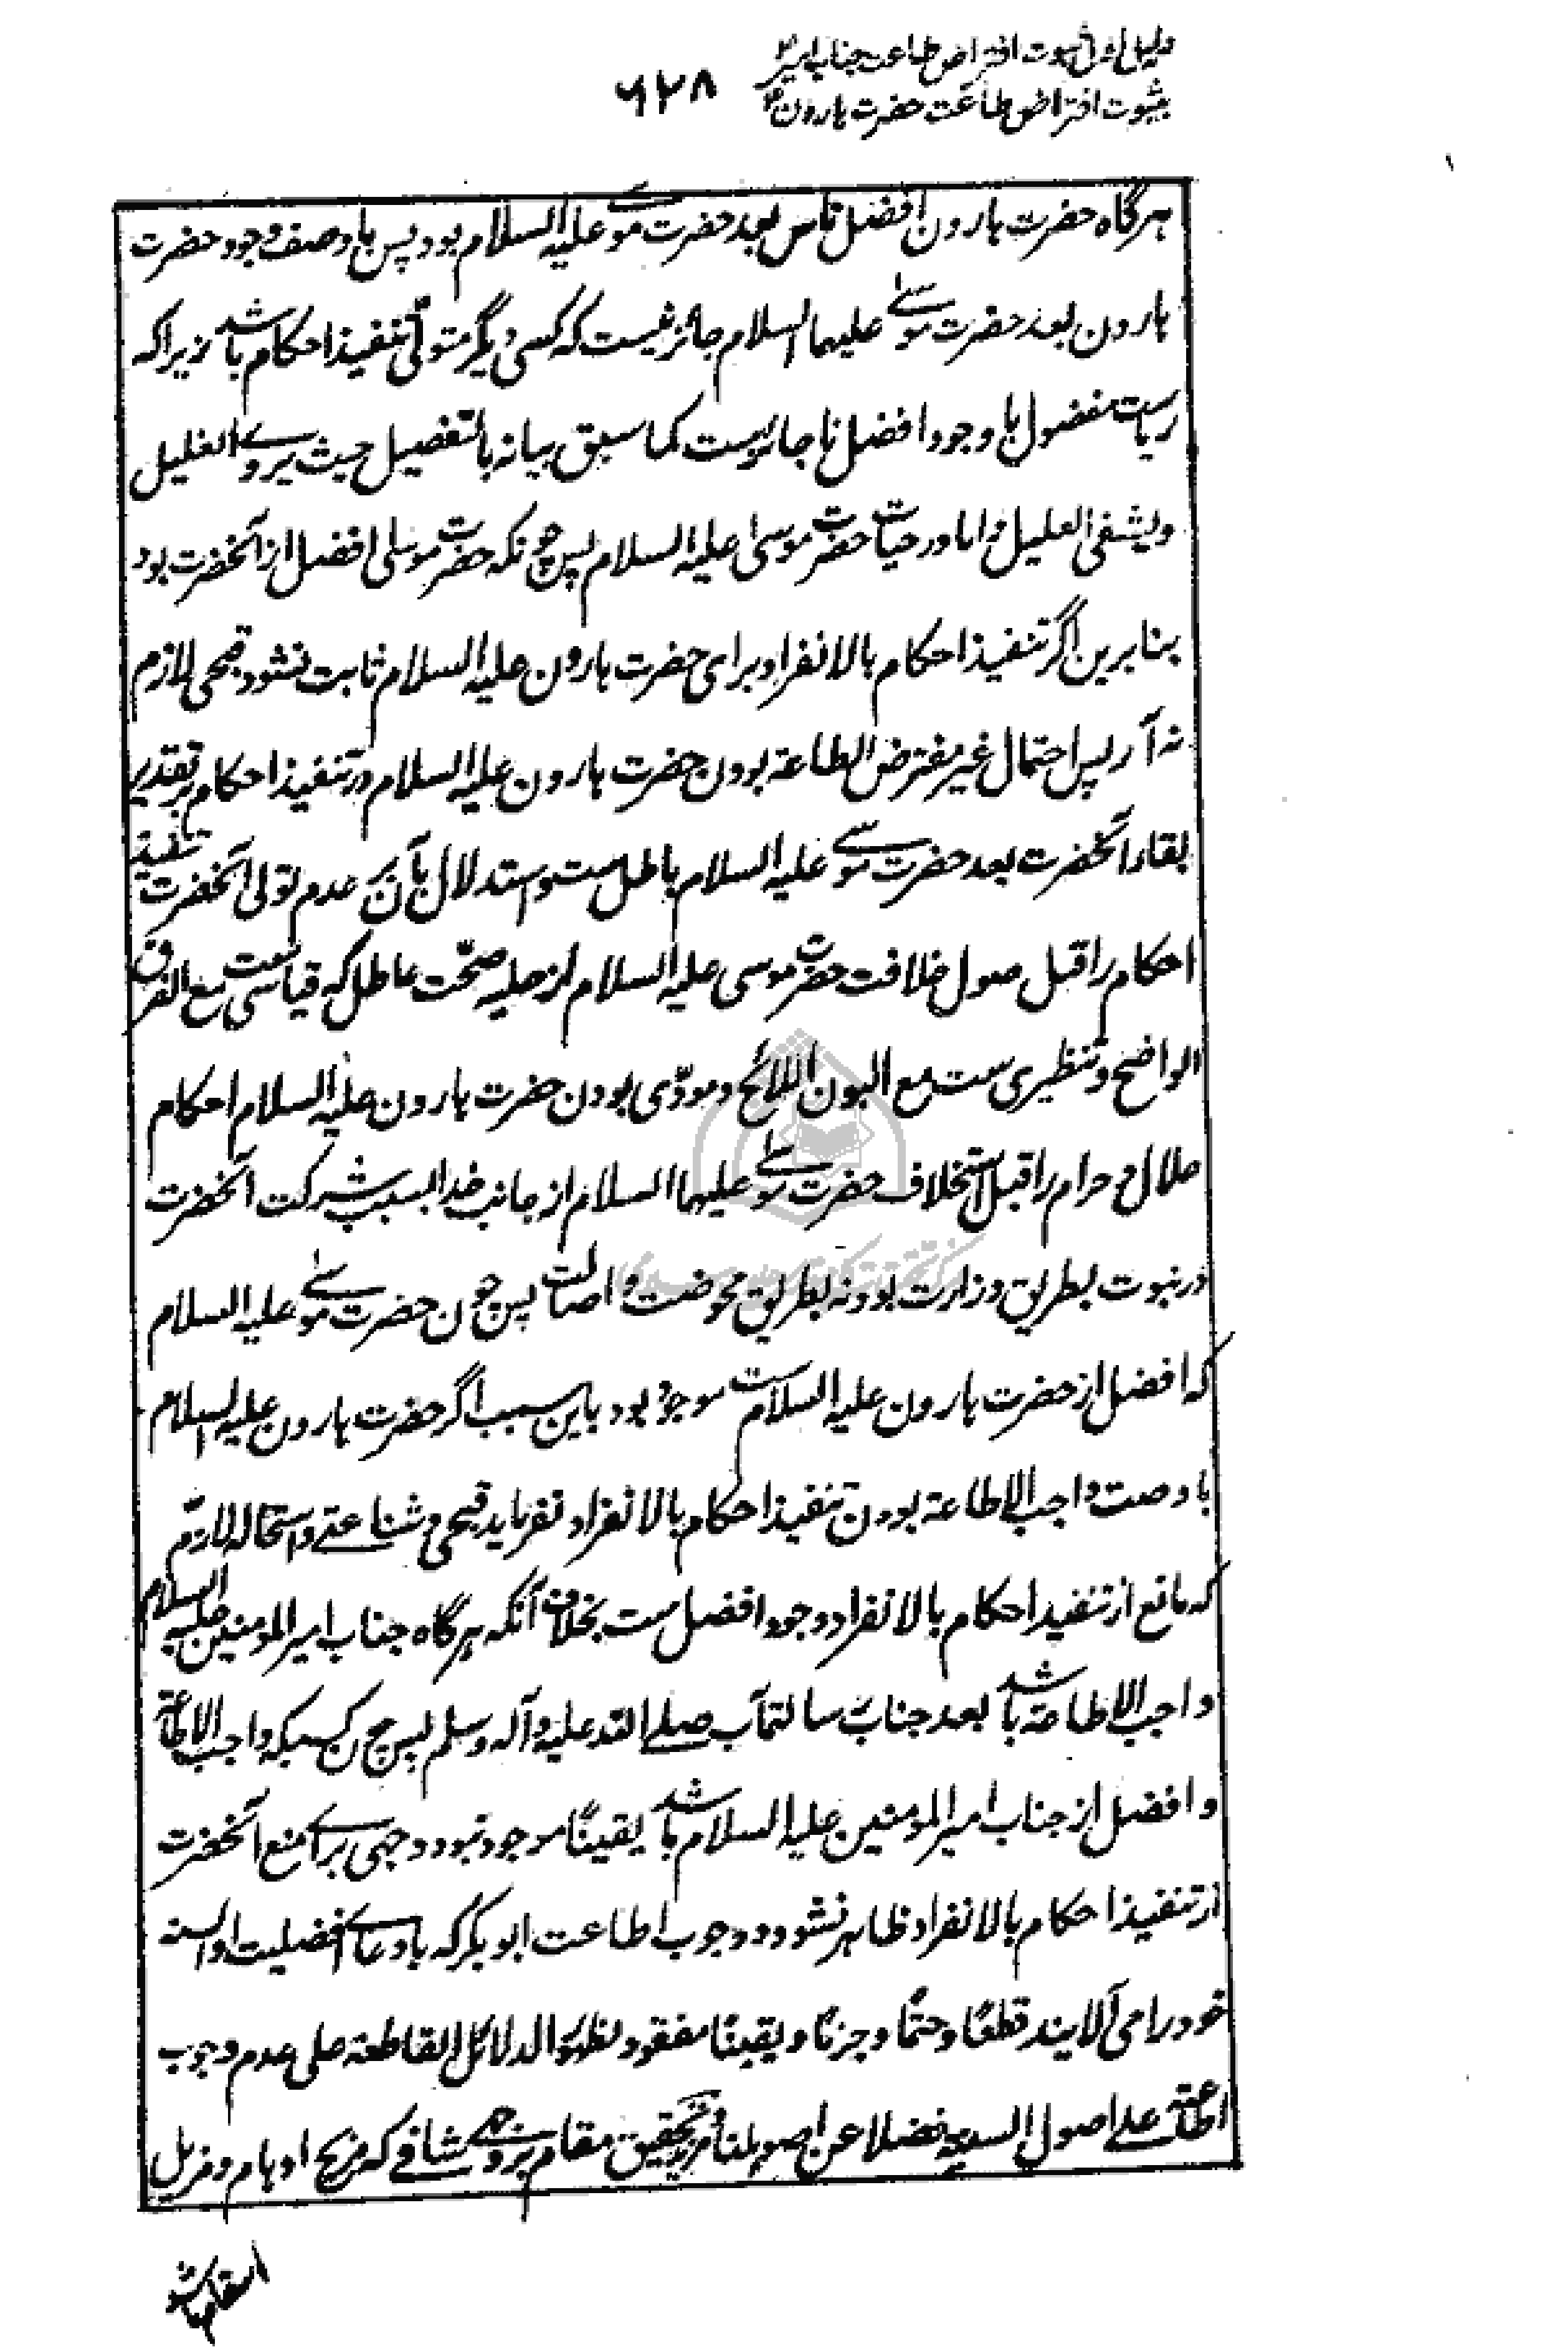 دلیل اول ثبوت افتراض طاعت جناب امیرؑ
بثبوت افتراض طاعت حضرت هارونؑ
۶۲۸
هرگاه حضرت هارون افضل ناس بعد حضرت موسی علیه السلام بود پس با وصف وجود حضرت
هارون بعد حضرت موسی علیهما السلام جائز نیست که کسی دیگر متولّی تنفیذ احکام باشد زیرا که
ریاست مفضول با وجود افضل ناجائزست کما سبق بیانه بالتفصیل حیث یروی الغلیل
ویشفی العلیل و اما در حیات حضرت موسیٰ علیه السلام پس چونکه حضرت موسی افضل از آنحضرت بود
بنابرین اگر تنفیذ احکام بالانفراد برای حضرت هارون علیه السلام ثابت نشود قبحی لازم
نه آرد پس احتمال غیر مفترض الطاعة بودن حضرت هارون علیه السلام در تنفیذ احکام بر تقدیر
بقاء آنحضرت بعد حضرت موسی علیه السلام باطل ست و استدلال بآن بر عدم تولی آنحضرت تنفیذ
احکام را قبل حصول خلافت حضرت موسی علیه السلام از حلیه صحّت عاطل که قیاسی ست مع الفرق
الواضح و تنظیری ست مع البون اللائح و مودّی بودن حضرت هارون علیه السلام احکام
حلال و حرام را قبل استخلاف حضرت موسی علیهما السلام از جانب خدا بسبب شرکت آنحضرت
در نبوت بطریق وزارت بود نه بطریق محوضت و اصالت پس چون حضرت موسیٰ علیه السلام
که افضل از حضرت هارون علیه السلام ست موجود بود باین سبب اگر حضرت هارون علیه السلام
با وصف واجب الاطاعة بودن تنفیذ احکام بالانفراد نفرماید قبحی و شناعتے و استحاله لازم
که مانع از تنفیذ احکام بالانفراد وجود افضل ست بخلاف آنکه هرگاه جناب امیر المومنین علیه السلام
واجب الاطاعة باشد بعد جناب رسالتمآب صلے الله علیه و آله وسلم پس چون کسیکه واجب الاطاعة
و افضل از جناب امیر المومنین علیه السلام باشد یقیناً موجود نبود وجهی برای منع آنحضرت
از تنفیذ احکام بالانفراد ظاهر نشود و وجوب اطاعت ابوبکر که بادعای افضلیت او السنه
خود را می آلایند قطعًا و حتمًا و جزمًا و یقینًا مفقود لظهور الدلائل القاطعة علی عدم وجوب
اطاعته علے اصول السنیه فضلا عن اصولنا و مزید تحقیق مقام بر وجهے شافے که مزیح اوهام و مزیل